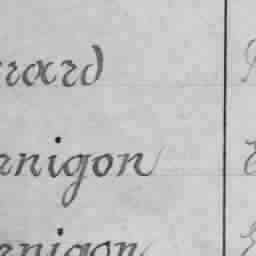 rard
rnigon
rnigon